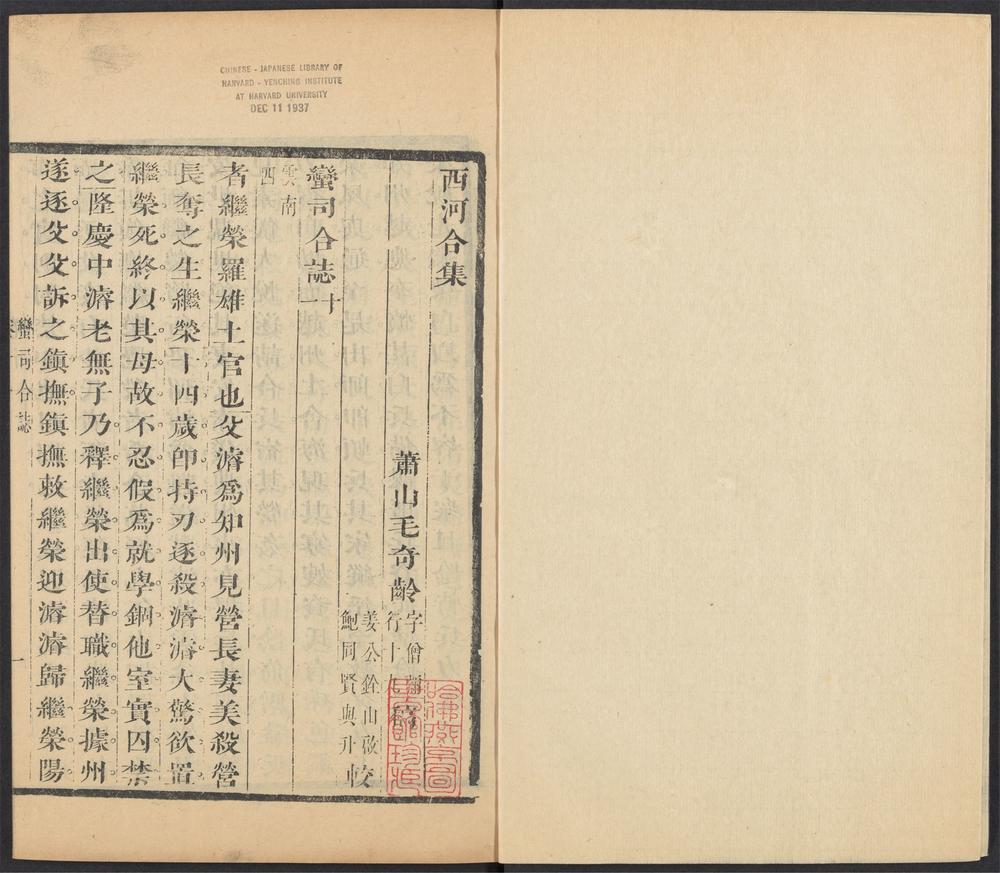 CHINESE - JAPANESE LIBRARY OF
HARVARD - YENCHING INSTITUTE
AT HARVARD UNIVERSITY
DEC 11 1937
西河合集
蕭山毛奇齡字僧
行十
姜公銓山啟
鮑同賢與升
較
蠻司合誌十
雲南
四
者繼榮羅雄土官也父濬爲知州見營長妻美殺營
長奪之生繼榮十四歲卽持刃逐殺濬濬大驚欲置
繼榮死終以其母故不忍假爲就學錮他室實囚禁
之隆慶中濬老無子乃釋繼榮出使替職繼榮據州
遂逐父父訴之鎮撫鎮撫敕繼榮迎濬濬歸繼榮陽
蠻司合誌
一
哈佛燕京圖
珍